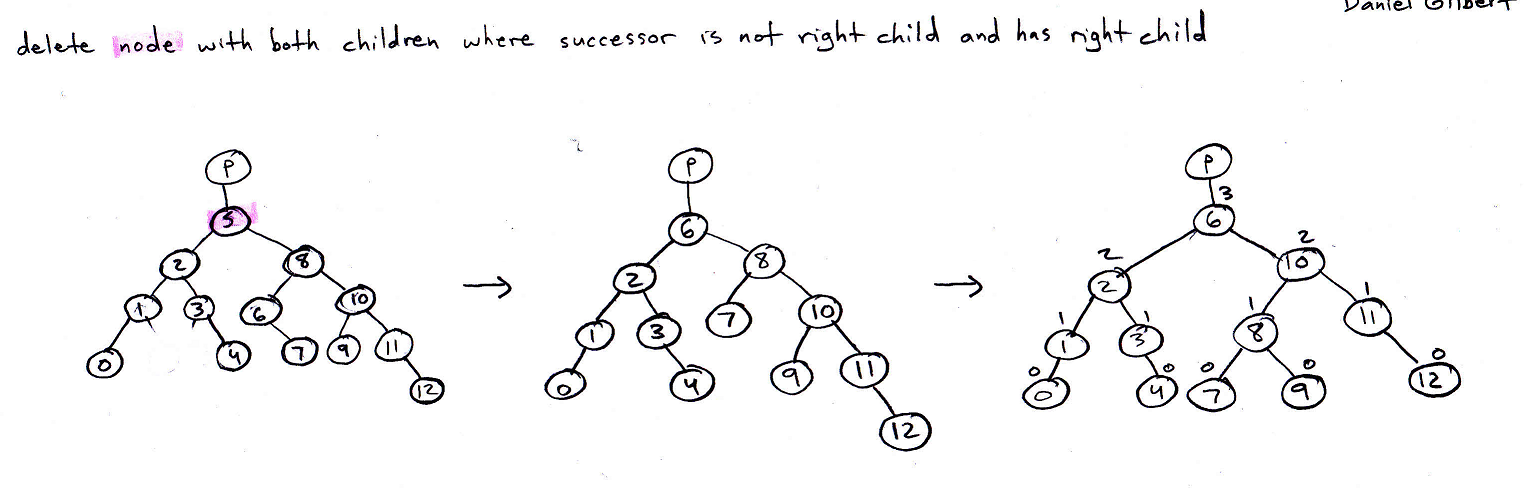 Daniel Gilbert
delete node with both children where successor is not right child and has right child
P
5
2 8
1 3 6 10
0 4 7 9 11
12
P
6
2 8
1 3 7 10
0 4 9 11
12
P
3
6
2 2
2 10
1 1 1 1
1 3 8 11
0 0 0 0 0
0 4 7 9 12